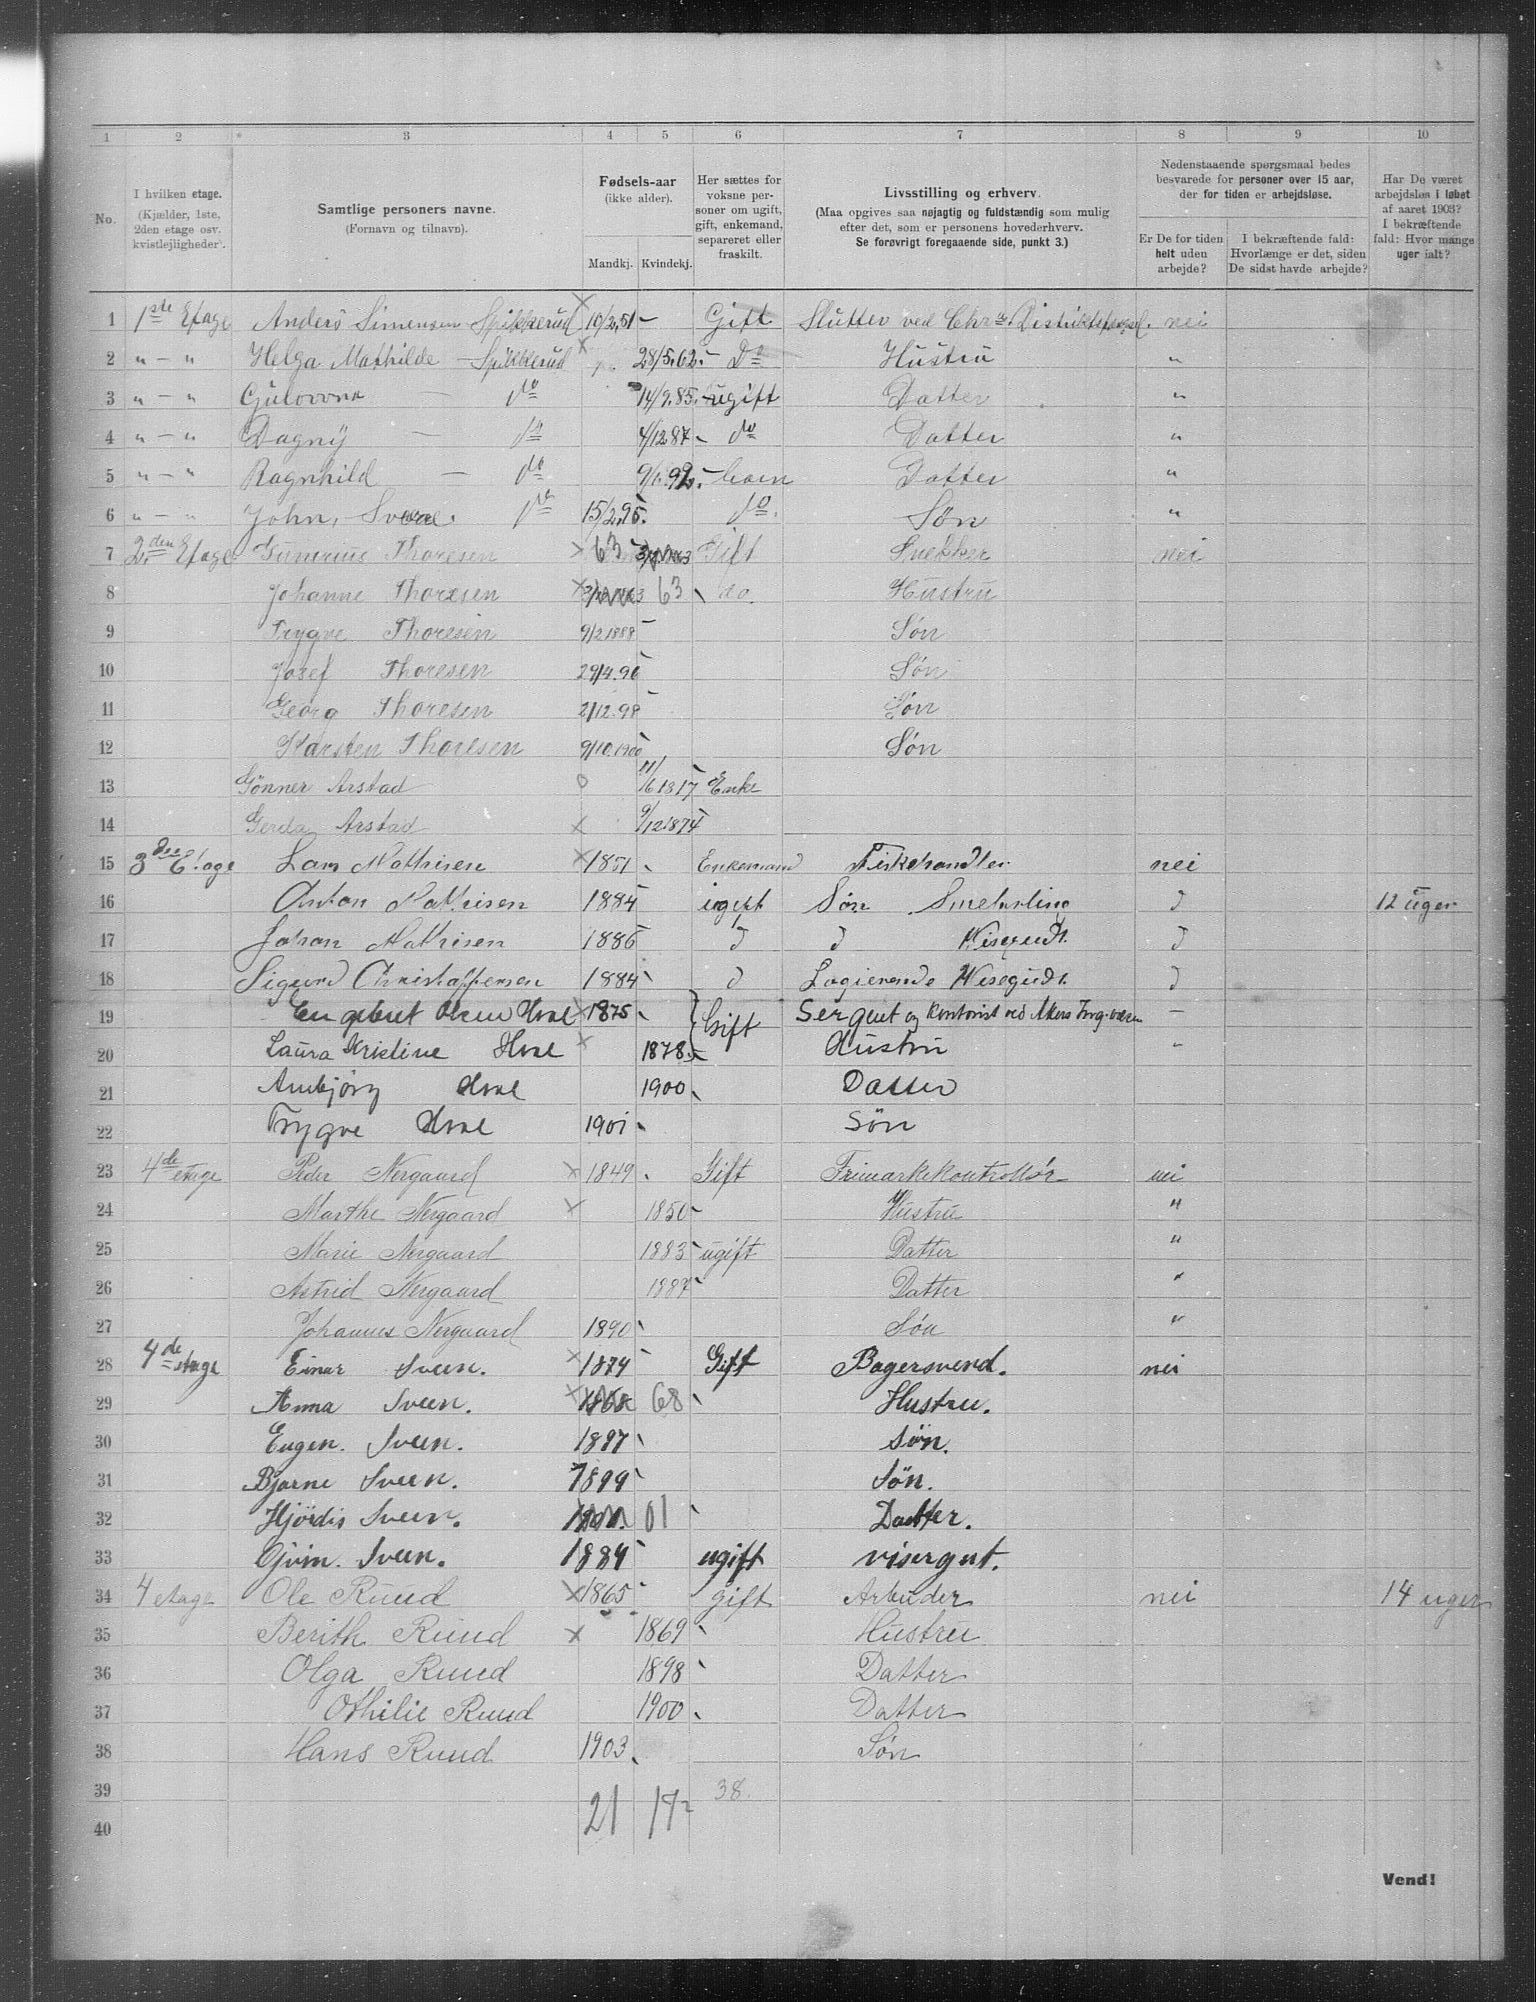 1 2 3 4 5 6 7 8 9 10
No.
I hvilken etage.
(Kjælder, 1ste,
2den etage osv.
kvistleiligheder).
Samtlige personers navne.
(Fornavn og tilnavn).
Fødsels-aar
(ikke alder).
Mandkj. Kvindekj.
Her sættes for
voksne per-
soner om ugift,
gift, enkemand,
separeret eller
fraskilt.
Livsstilling og erhverv.
(Maa opgives saa nøjagtig og fuldstændig som mulig
efter det, som er personens hovederhverv.
Se forøvrigt foregaaende side, punkt 3.)
Nedenstaaende spørgsmaal bedes
besvarede for personer over 15 aar,
der for tiden er arbejdsløse.
Er De for tiden
helt uden
arbejde?
I bekræftende fald:
Hvorlænge er det, siden
De sidst havde arbejde?
Har De været
arbejdsløs i løbet
af aaret 1903?
I bekræftende
fald: Hvor mange
uger ialt?
1 1ste Etage Anders Simensen Spikkerud 10/2.51 Gift Slutter ved Chra. nei
2 " - " Helga Mathilde Spikkerud 28/5.62. Do Hustru "
3 " - " do 14/9.85. ugift Datter "
4 " - " Dagny - do 4/12 87 do Datter "
5 " - " Ragnhild - do 92. barn Datter "
6 " - " John, do 15/2.95. do. Søn "
7 2den Etage Thoresen 63 Gift Snekker nei
8 Johanne Thoresen 63 do. Hustru
9 Trygve Thoresen 9/2 1888 Søn
10 Josef Thoresen 29/4.96 Søn
11 Georg Thoresen 2/12.98 Søn
12 Karsten Thoresen 9/10.1900 Søn
13 Gönner Arstad 11/6 1817 Enke
14 Gerda Arstad 9/12.1874
15 3die Etage Lars Mathisen 1851 Enkemand Fiskehandler nei
16 Anton Mathisen 1884 ugift Søn 12 uger
17 Johan Mathisen 1886 d d Visergudt. d
18 Sigurd Christoffersen 1884 d Logierende Visegudt. d
19 Engebret Olsen Hval 1875 Gift Sergent og Kontorist ved Akers -
20 Laura Kristine Hval 1878. Hustru "
21 Hval 1900 Datter
22 Trygve Hval 1901 Søn
23 4de etage Peder Nergaard 1849 Gift Frimærkekontrollør nei
24 Marthe Nergaard 1850 Hustru "
25 Marie Nergaard 1883 ugift Datter "
26 Astrid Nergaard 1887 Datter "
27 Johannes Nergaard 1890 Søn "
28 4de etage Einar Sveen. 1874 Gift Bagersvend. nei
29 Anna Sveen. 1868 68 Hustru.
30 Eugen. Sveen. 1897 Søn.
31 Bjarne Sveen. 1899 Søn.
32 Hjördis Sveen. 01 Datter.
33 Sveen. 1884 ugift visergut.
34 4 etage Ole Ruud 1865 gift Arbeider nei 14 uger
35 Berith Ruud 1869 Hustru
36 Olga Ruud 1898 Datter
37 Othilie Ruud 1900 Datter
38 Hans Ruud 1903 Søn
39 38.
40 21 17
Vend!